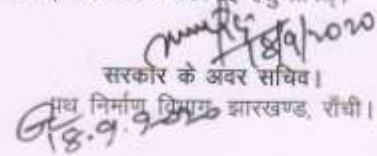 18/9/2020
सरकार के अवर सचिव।
पथ निर्माण विभाग झारखण्ड, राँची।
18.9.2020